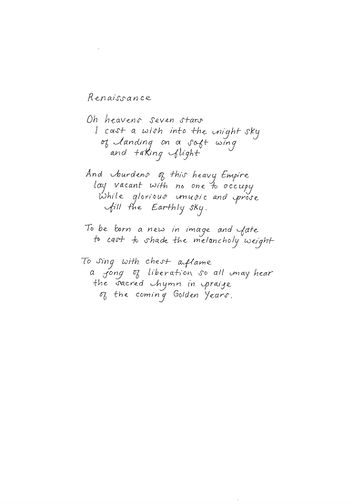 Renaissance
Oh heavens seven stars
I cast a wish into the night sky
of landing on a soft wing
and taking flight
And burdens of this heavy Empire
lay vacant with no one to occupy
While glorious music and prose
fill the Earthly sky.
To be born a new in image and fate
to cast to shade the melancholy weight
To sing with chest aflame
a song of liberation so all may hear
the sacred hymn in praise
of the coming Golden Years.